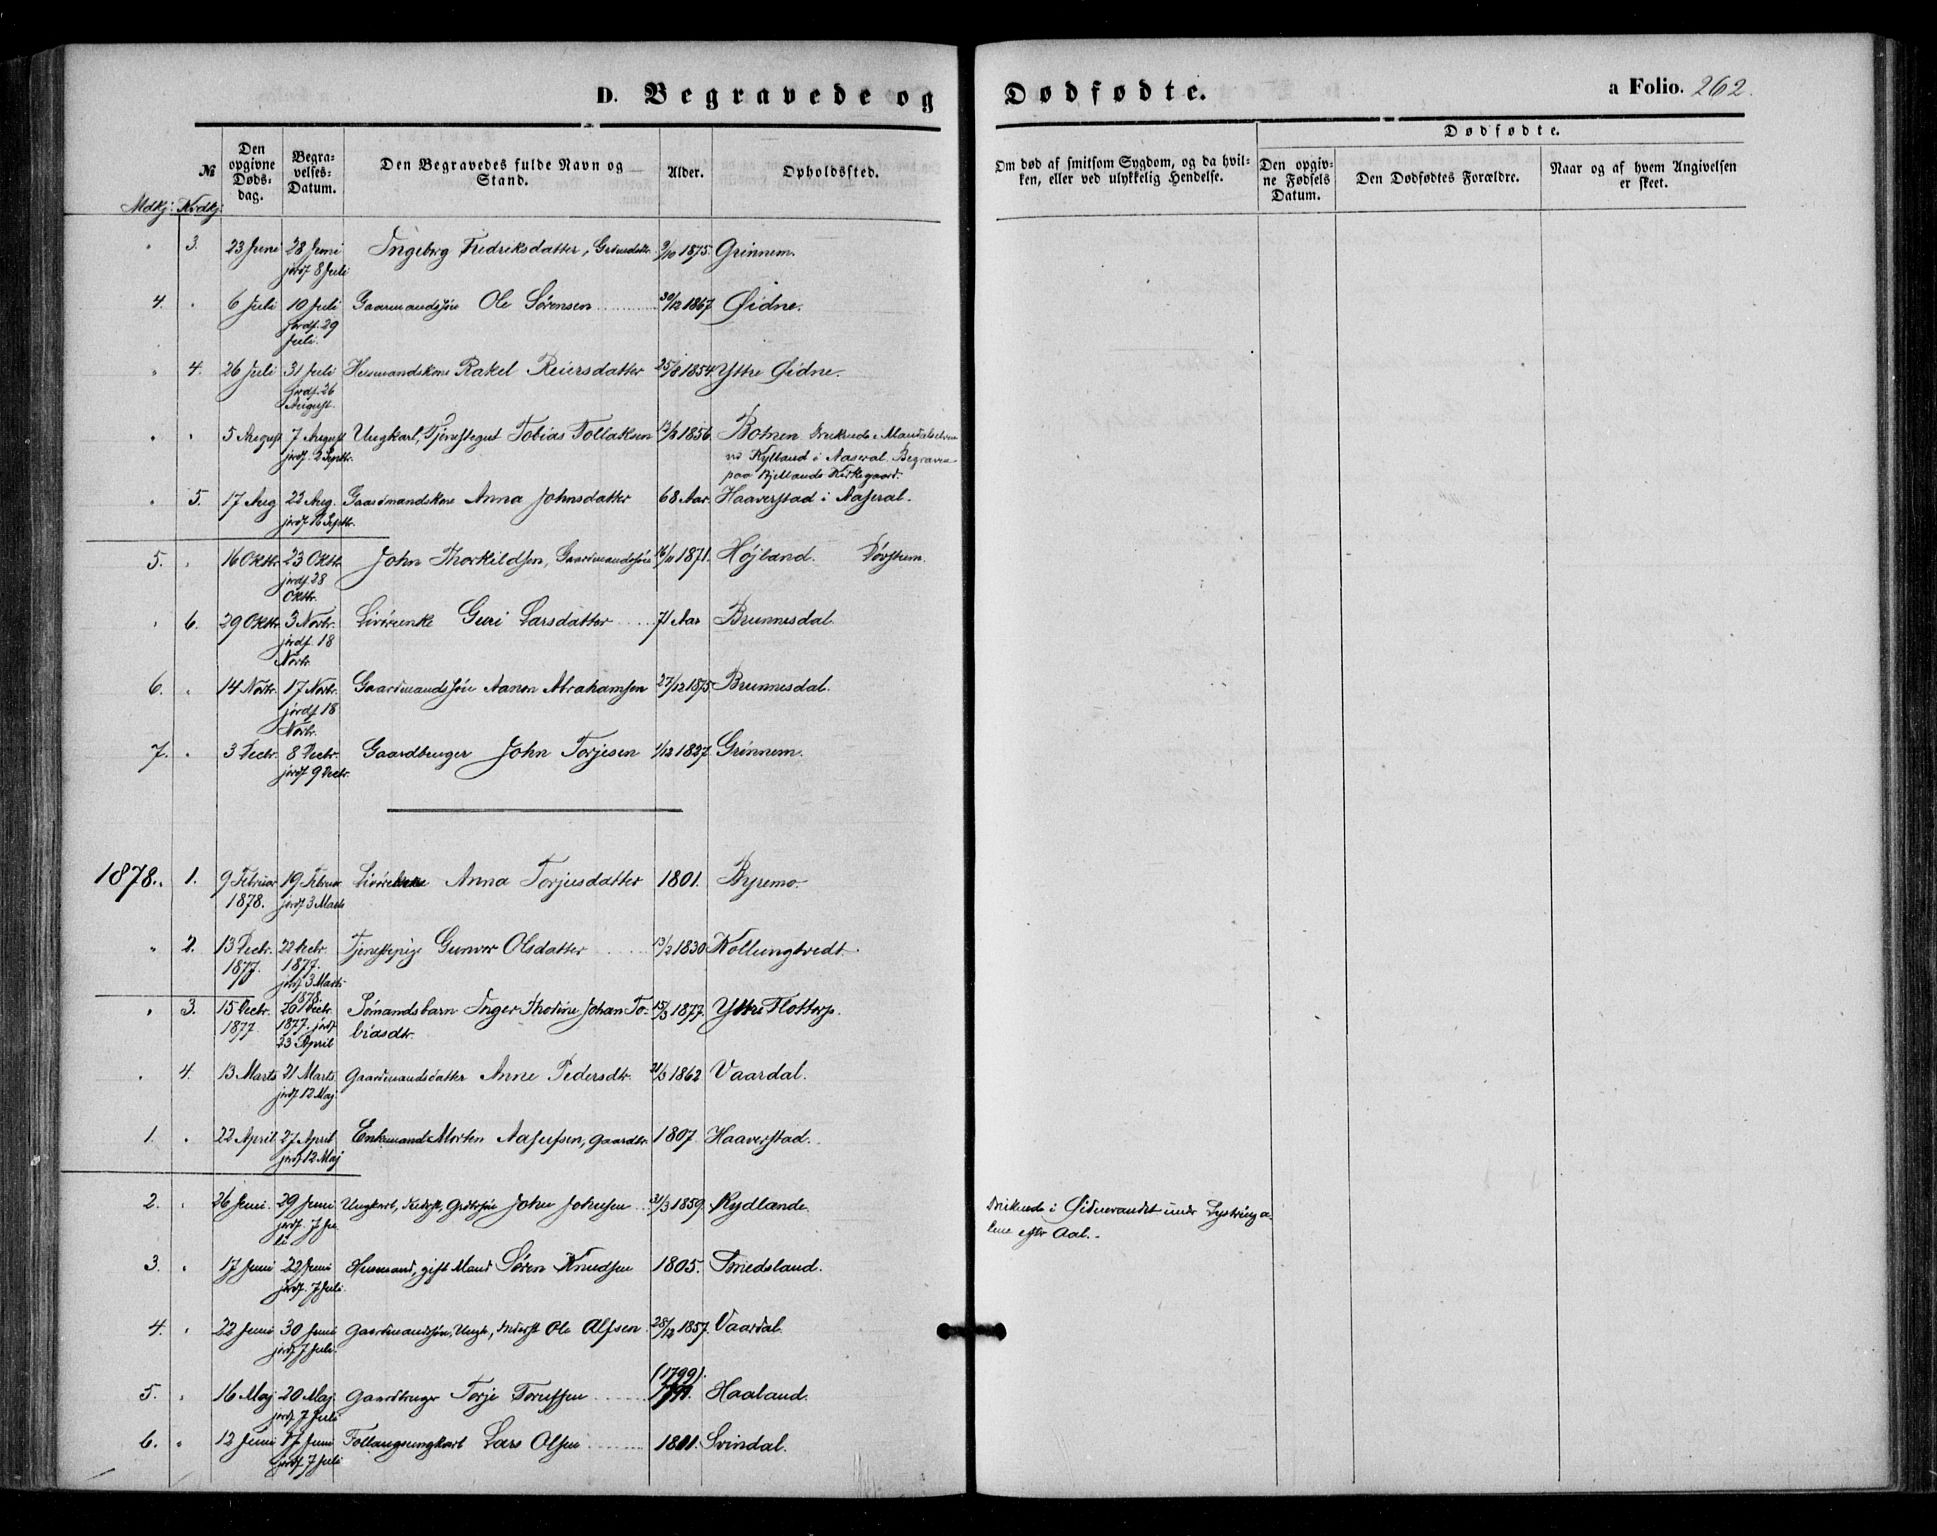 D. Begravede og
Dødfødte.
a Folio. 262.
№
Den opgivne Døds-dag.
Begra-velses-Datum.
Den Begravedes fulde Navn og Stand.
Alder.
Opholdssted.
Om død af smitsom Sygdom, og da hvil-ken, eller ved ulykkelig Hendelse.
Dødfødte.
Den opgiv-ne Fødsels Datum.
Den Dødfødtes Forældre.
Naar og af hvem Angivelsen er skeet.
Mdkj: Kvdkj:
" 3. 23 Juni 28 Juni Ingeborg Fredriksdatter, 9/10 1875. Grinnem.
jordf 8 Juli
4. " 6 Juli 10 Juli Gaarmandssøn Ole Sørensen 30/12 1867 Øidne.
jordf. 29
Juli.
" 4. 26 Juli 31 Juli Husmandskone Rakel Reiersdatter 25/8 1854. Yttre Øidne.
jordf. 26
August.
" " 5 August 7 August Ungkarl, Tjenestegut Tobias Tollaksen 1856. Botnen. Druknede i Mandalselven
jordf. 2 Septbr. ved Kylland i Aaseral. Begraven
paa Bjellands Kirkegaard.
" 5. 17 Aug 22 Aug. Gaardmandskone Anna Johnsdatter 68 Aar. Haaverstad i Aaseral.
jordf 16 Septbr.
5. " 16 Oktbr 23 Oktbr John Thorkildsen, Gaardmandssøn 16/11 1871. Højland.
jordf. 28
Oktbr.
" 6. 29 Oktbr 3 Novbr. Livørenke Guri Larsdatter 71 Aar Brunnesdal.
jordf. 18
Novbr.
6. " 14 Novbr. 17 Novbr. Gaardmandssøn Aanon Abrahamsen 27/12 1875 Brunnesdal.
jordf. 18
Novbr.
7. " 3 Decbr. 8 Decbr. Gaardbruger John Torjesen 1/12 1827. Grinnem.
jordf 9 Decbr.
1878. " 1. 9 Februar 19 Februar Anna Torjusdatter 1801. Byremo.
1878. jordf 3 Marts
" 2. 13 Decbr. 22 Decbr. Tjenestepige Gunvor Olsdatter 13/2 1830 Kollungtvedt.
1877. 1877.
jordf 3 Marts
1878.
" 3. 15 Decbr. 20 Decbr. Sømandsbarn Inger Thodine Johan To- 15/3 1877. Yttre Flottorp.
1877 1877. jordf biasdtr.
23 April
" 4. 13 Marts 21 Marts. Gaardmandsdatter Anne Pedersdtr. 21/3 1862 Vaardal.
jordf 12 Maj
1. " 22 April. 27 April Enkemand Morten Aasulfsen, Gaardbr. 1807. Haaverstad.
jordf 12 Maj
2. " 26 Juni. 29 Juni Ungkarl, Inderst, Gdbrsøn John Johnsen 31/3 1859. Rydlande.
jordf. 7 Ju
li
Druknede i Øidnevandet under Lystring a-
lene efter Aal.
3. " 17 Juni 22 Juni Husmand, gift Mand Søren Knudsen 1805. Smedsland.
jordf. 7 Juli.
4. " 22 Juni 30 Juni Gaardmandssøn, Ungk., Inderst Ole Alfsen 28/12 1857. Vaardal.
jordf 7 Juli.
(1799).
5. " 16 Maj 20 Maj Gaardbruger Torje 1791. Haaland.
jordf 7 Juli
6. " 12 Juni 17 Juni Lars Olsen 1801. Svindal.
jordf 7 Juli